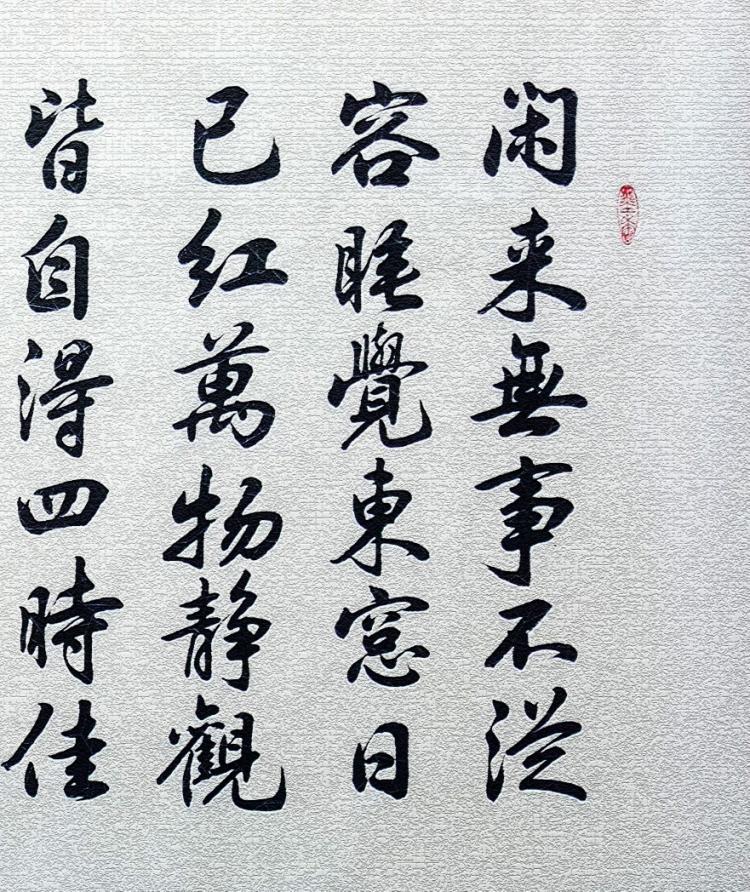 閑来無事不從
容睡覺東窓日
已紅萬物静觀
皆自得四時佳